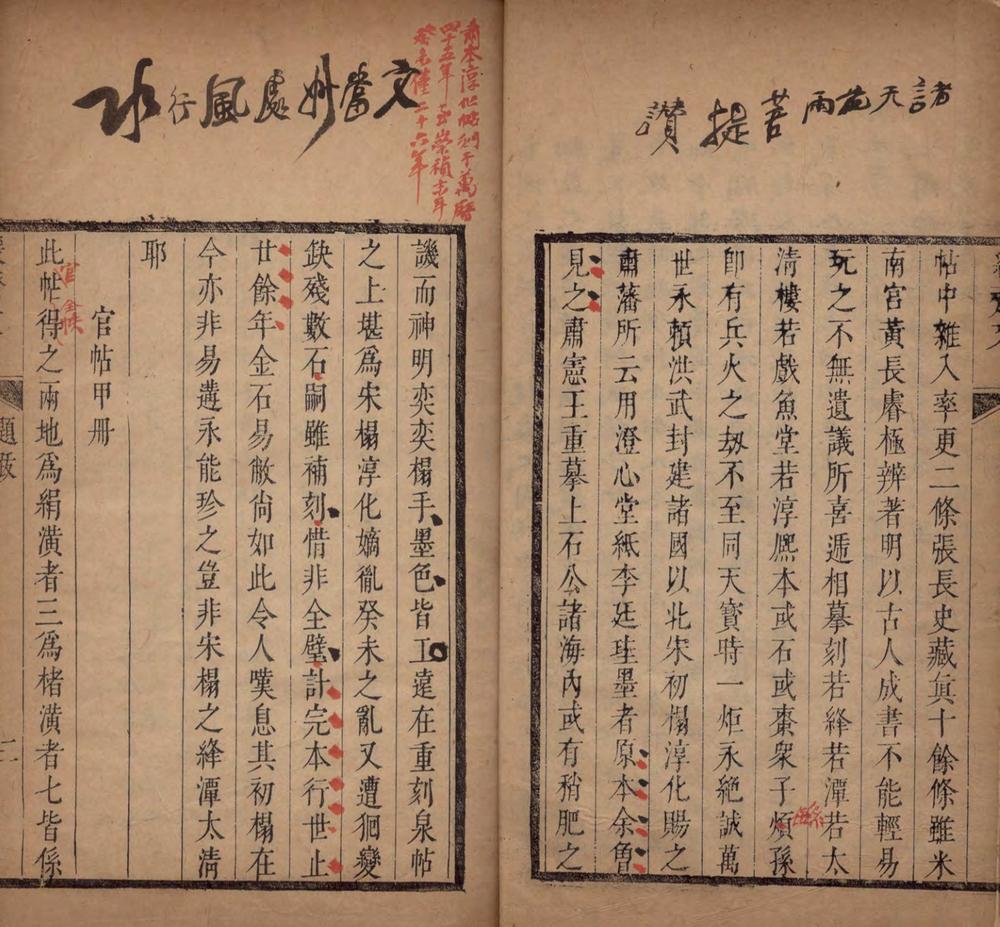 諸天花雨菩提讚
帖中雜入率更二條張長史藏眞十餘條雖米
南宮黃長睿極辨著明以古人成書不能輕易
玩之不無遺議所喜遞相摹刻若絳若潭若太
清樓若戲魚堂若淳熈本或石或棗衆子煩孫
卽有兵火之刼不至同天寶時一炬永絕誠萬
世永賴洪武封建諸國以北宋初榻淳化賜之
肅藩所云用澄心堂紙李廷珪墨者原本余曾
見之肅憲王重摹上石公諸海內或有稍肥之
肅本淳化帖刻于萬曆
四十五年至崇禎末年
癸未僅二十六年
文當妙處風行水
譏而神明奕奕榻手墨色皆工遠在重刻泉帖
之上堪爲宋榻淳化嫡胤癸未之亂又遭徊變
缺殘數石嗣雖補刻惜非全璧計完本行世止
廿餘年金石易敝尙如此令人嘆息其初榻在
今亦非易遘永能珍之豈非宋榻之絳潭太清
耶
官帖甲册
此帖得之兩地爲絹潢者三爲楮潢者七皆係
題跋
二